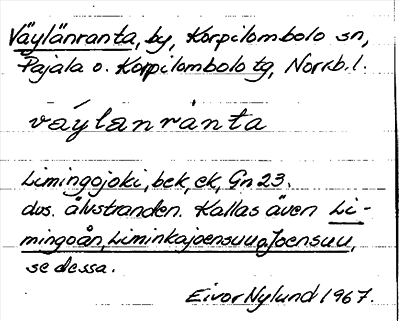 Väylänranta, by, Korpilombolo sn,
Pajala o. Korpilombolo tg, Norrb. l.
váylanránta
Limingojoki, bek, ek, Gn 23.
dvs. älvstranden. Kallas även Li-
mingoån, Liminkajoensuu o. Joensuu,
se dessa.
Eivor Nylund 1967.